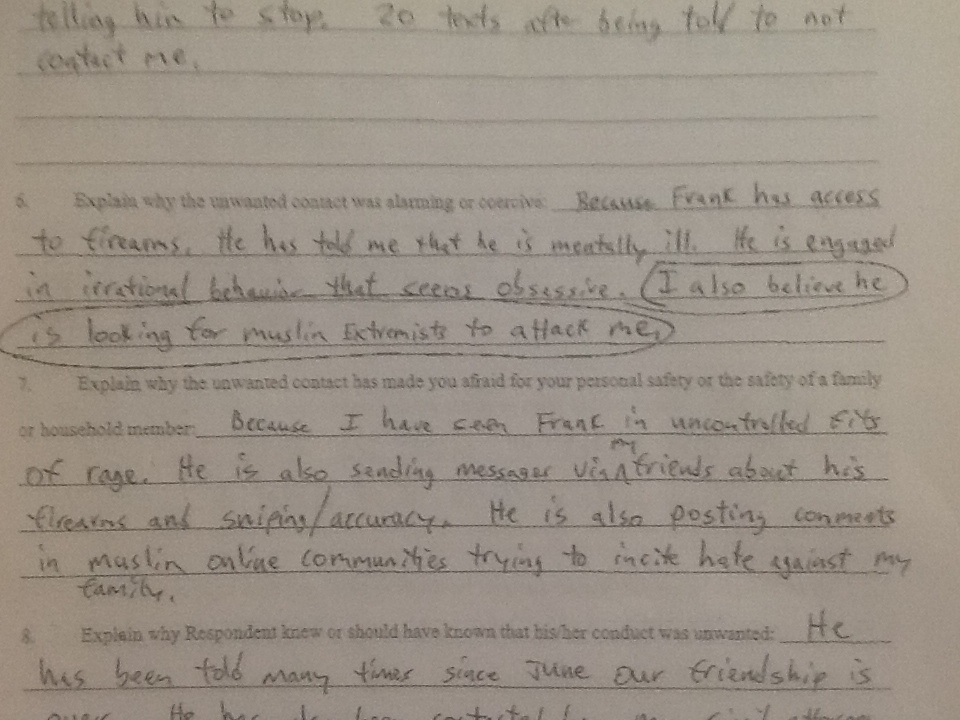 telling him to stop. 20 texts after being told to not
contact me.
6. Explain why the unwanted contact was alarming or coercive: Because Frank has access
to firearms. He has told me that he is mentally ill. He is engaged
in irrational behavior that seems obsessive. (I also believe he
is looking for muslin Extremists to attack me.)
7. Explain why the unwanted contact has made you afraid for your personal safety or the safety of a family
or household member: Because I have seen Frank in uncontrolled fits
my
of rage. He is also sending messages via friends about his
firearms and sniping/accuracy. He is also posting comments
in muslin online communities trying to incite hate against my
family.
8. Explain why Respondent knew or should have known that his/her conduct was unwanted: He
has been told many times since June our friendship is
over. He has